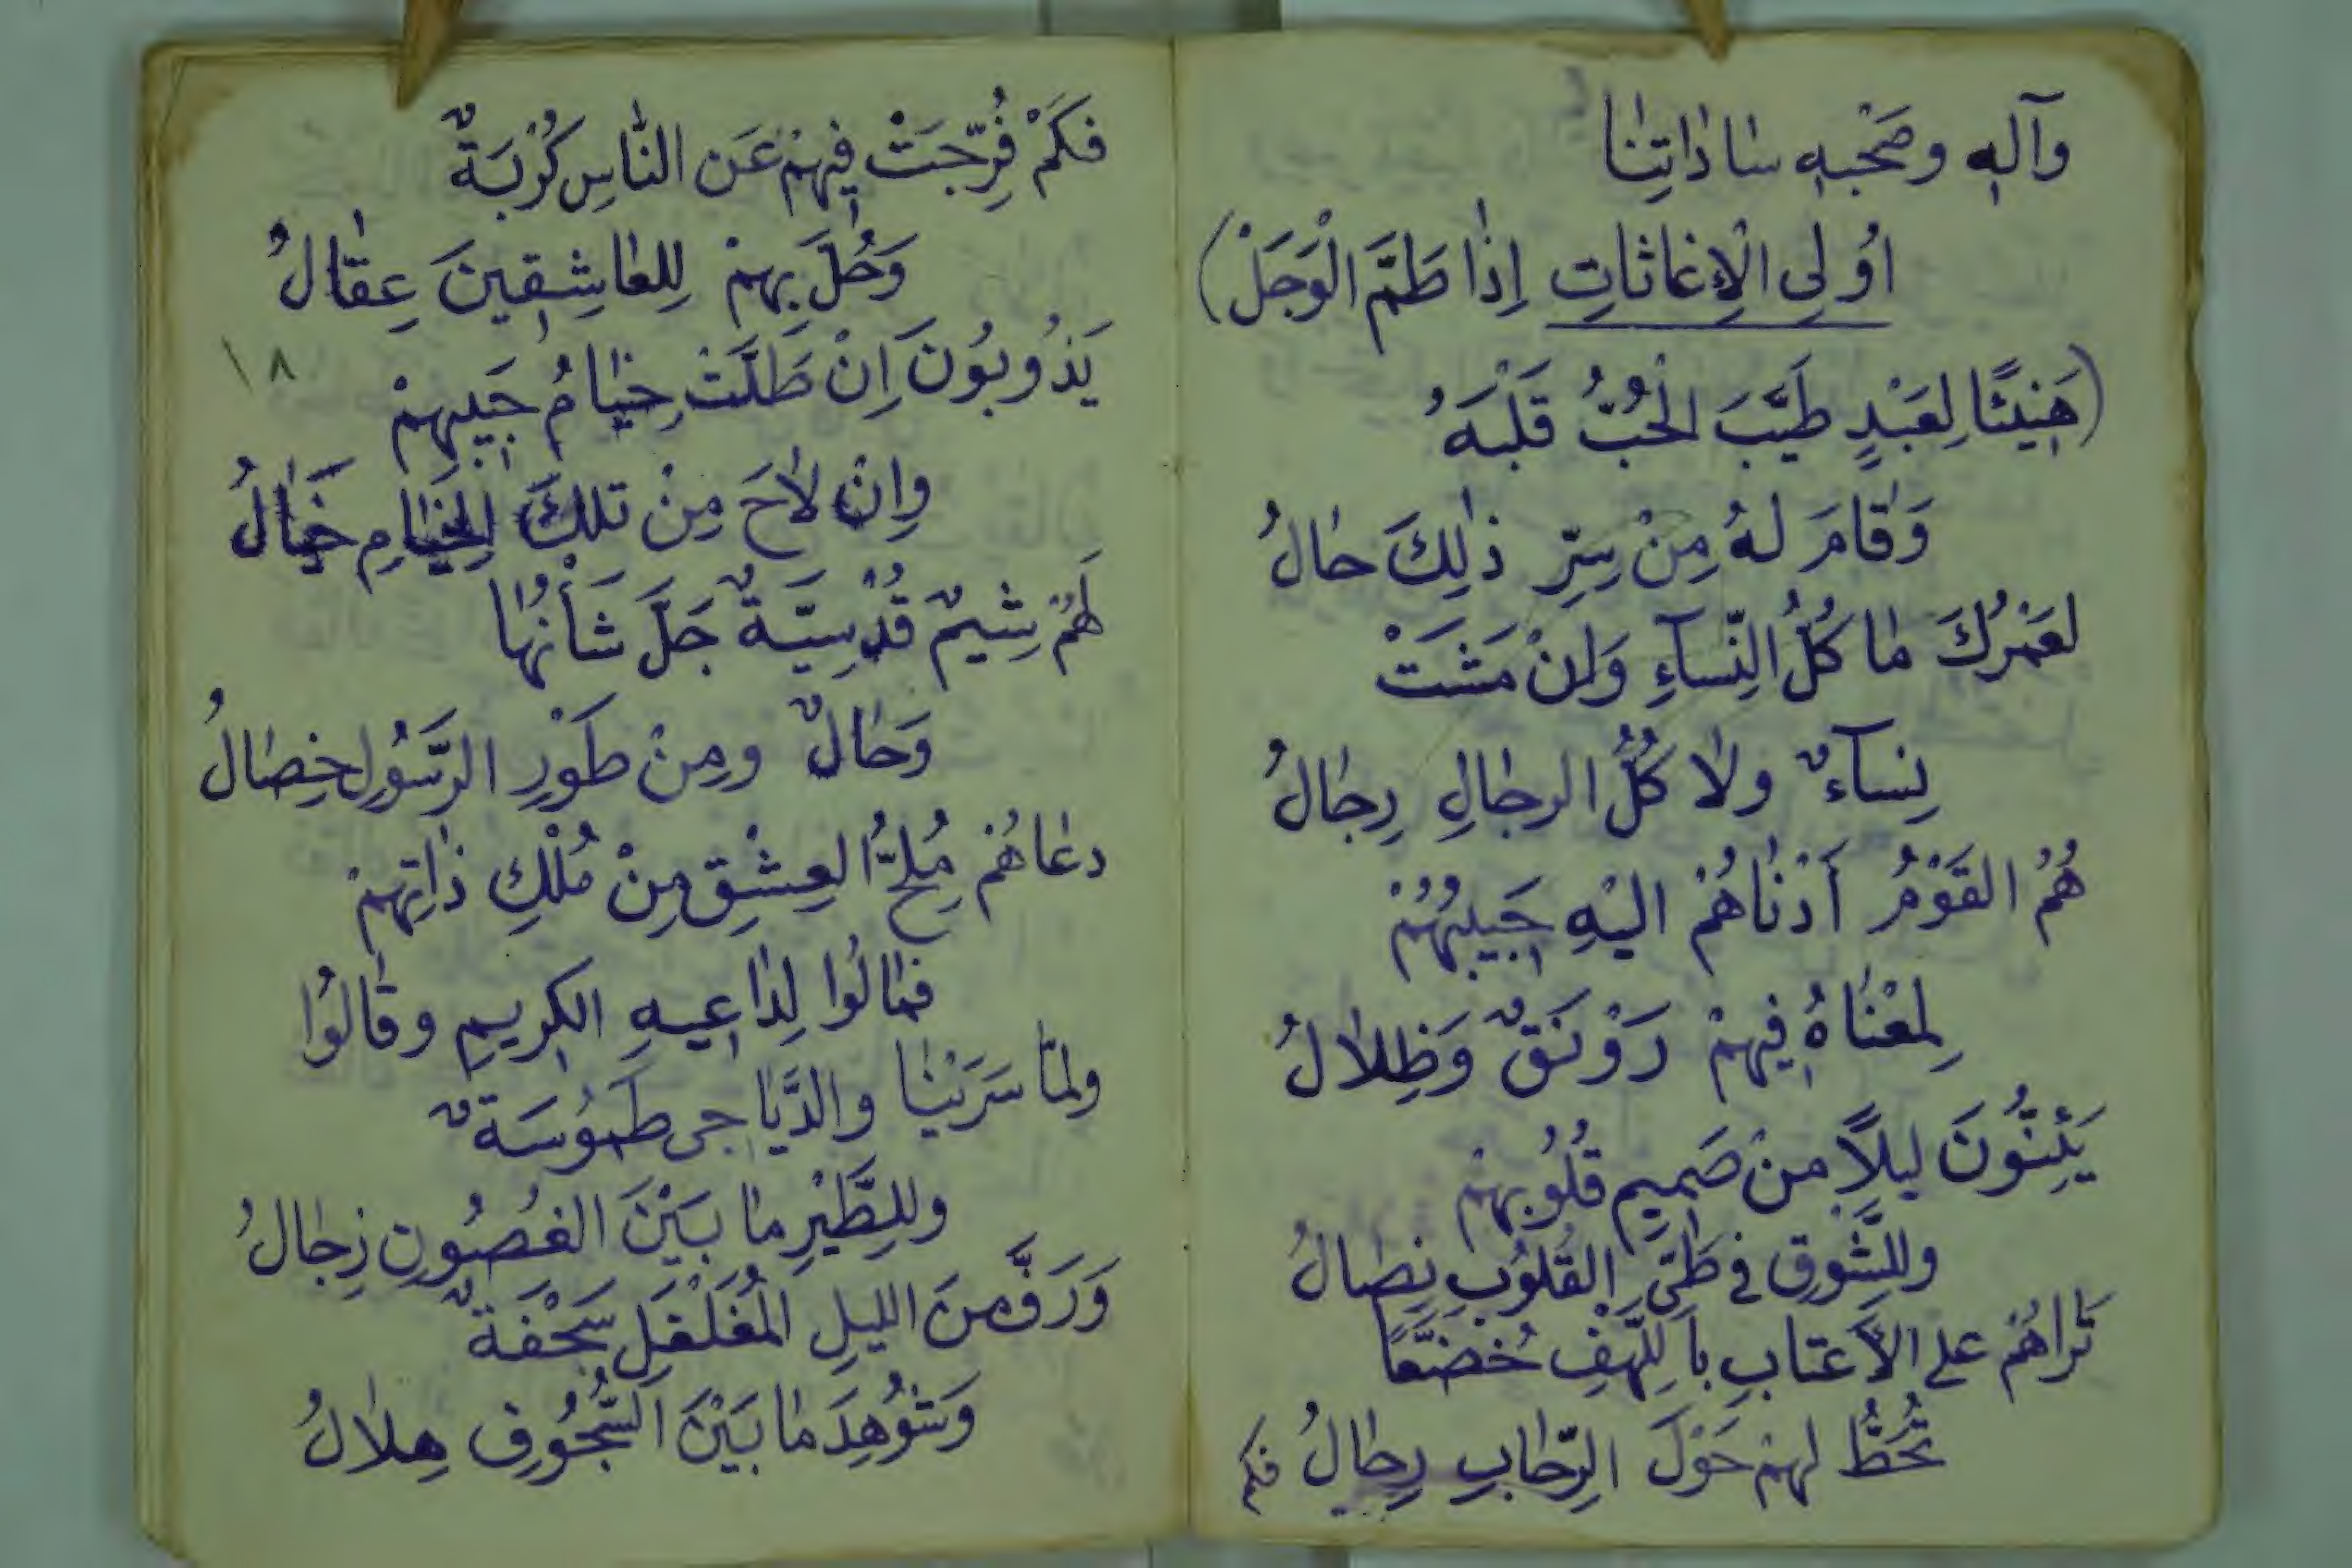 وَآلِهِ وصَحْبِهِ سَادَاتِنَا
اُولِي الْاِغَاثَاتِ اِذَا طَمَّ الْوَجَلْ)
(هَنِيئًا لِعَبْدٍ طَيَّبَ الْحُبُّ قَلْبَهُ
وَقَامَ لَهُ مِنْ سِرِّ ذٰلِكَ حَالُ
لعَمْرُكَ مَا كُلُّ النِّسَآءِ وَاِنْ مَشَتْ
نِسَآءٌ ولَا كُلُّ الرجَالِ رِجَالُ
هُمُ القَوْمُ أَدْنَاهُمْ اليْهِ حَبِيبُهُمْ
لِمَعْنَاهُ فِيهِمْ رَوْنَقٌ وَظِلَالُ
يَئِنُّونَ ليلاً مِنْ صَمِيمِ قُلُوبِهِمْ
وللشَّوْقِ في طَيِّ القُلُوبِ نِصَالُ
تَرَاهُمْ على الأَعتابِ باللَّهْفِ خُضَّعًا
تُحَطُّ لهمْ حَوْلَ الرِّحَابِ رِحَالُ
فكم
فكَمْ فُرِّجَتْ فِيهِمْ عَنِ النَّاسِ كُرْبَةٌ
وَحُلَّ بِهِمْ لِلعَاشِقِينَ عِقَالُ
١٨
يَذُوبُونَ اِنْ طَلَّتْ خِيَامُ حَبِيبِهِمْ
وَاِنْ لَاحَ مِنْ تلكَ الخِيَامِ خَيَالُ
لَهُمْ شِيَمٌ قُدْسِيَّةٌ جَلَّ شَأْنُهَا
وَحَالٌ ومِنْ طَوْرِ الرَّسُولِ خِصَالُ
دعَاهُمْ مُلِحُّ العِشْقِ مِنْ مُلْكِ ذَاتِهِمْ
فمَالُوا لِدَاعِيهِ الكريمِ وقَالُوا
ولمَّا سَرَيْنَا والدَّيَاجى طَمُوسَةٌ
وللطَّيْرِ مَا بَيْنَ الغُصُونِ زِجَالُ
وَرَفَّ مِنَ الليلِ المُغَلْغَلِ سَجْفَةٌ
وَشُوْهِدَ مَا بَيْنَ السُّجُوفِ هِلَالُ